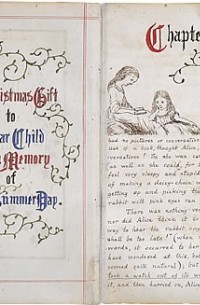 istmas Gift
to
ar Child
Memory
of
Summer Day.
Chapte
had no pictures or conversation
use of a book, thought Alice,
versations? So she was con
as well as she could, for
feel very sleepy and stupid
of making a daisy-chain w
getting up and picking the
rabbit with pink eyes ran
There was nothing ve
nor did Alice think it so
way to hear the rabbit say
shall be too late!" (when
words, it occurred to her
have wondered at this, but
seemed quite natural); but
took a watch out of its wa
it, and then hurried on, Alice